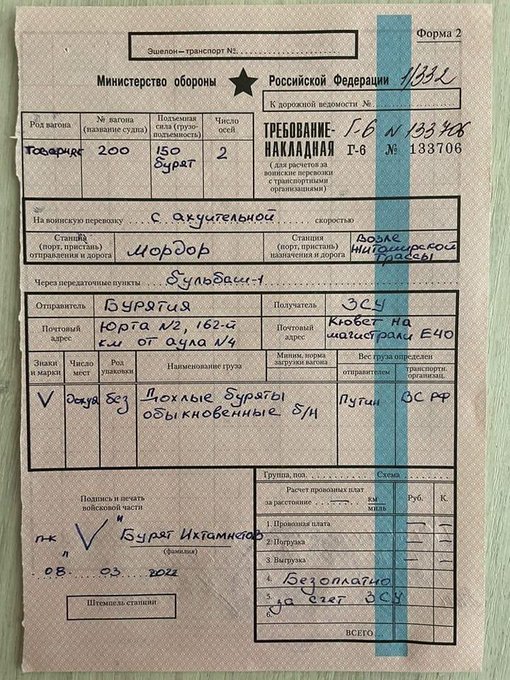 Форма 2
Эшелон—транспорт №
Министерство обороны Российской Федерации 1/332
К дорожной ведомости №
Род вагона
№ вагона (название судна)
Подъемная сила (грузо-подъемность)
Число осей
товарняк 200 150 бурят 2
ТРЕБОВАНИЕ-НАКЛАДНАЯ
Г-6 N 133706
Г-6 № 133706
(для расчетов за воинские перевозки с транспортными организациями)
На воинскую перевозку с ахуительной скоростью
Станция (порт, пристань) отправления и дорога Мордор
Станция (порт, пристань) назначения и дорога Возле Житомирской трассы
Через передаточные пункты бульбаш-1
Отправитель БУРЯТИЯ
Получатель ЗСУ
Почтовый адрес Юрта N2, 162-й км от аула N4
Почтовый адрес Кювет на магистрали Е40
Знаки и марки
Число мест
Род упаковки
Наименование груза
Миним. норма загрузки вагона
Вес груза определен
отправителем
транспортн. организац.
V дохуя без Дохлые буряты обыкновенные б/н Путин ВС РФ
Группа, поз. Схема
Расчет провозных плат
за расстояние — км миль
Руб. К.
1. Провозная плата — —
2. Погрузка — —
3. Выгрузка — —
4. Безоплатно
5. за счет ЗСУ
6.
ВСЕГО ...
Подпись и печать войсковой части
п-к V "Бурят Ихтамнетов"
(фамилия)
08 03 2022
Штемпель станции